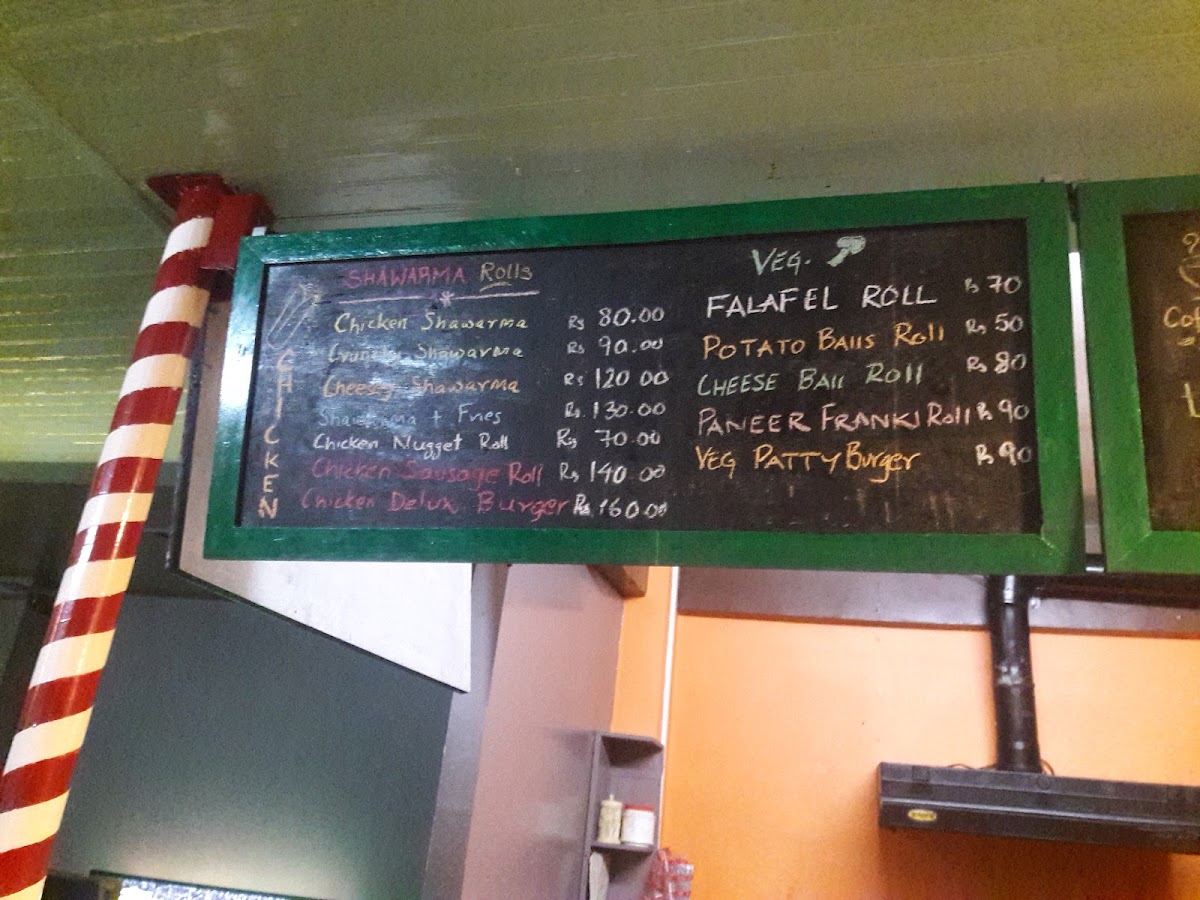 SHAWARMA Rolls
CHICKEN
Chicken Shawarma Rs 80.00
Crunchy Shawarma Rs 90.00
Cheesey Shawarma Rs 120 00
Shawarma + Fries Rs. 130.00
Chicken Nugget Roll Rs 70.00
Chicken Sausage Roll Rs 140.00
Chicken Delux Burger Rs 160.00
VEG.
FALAFEL ROLL Rs 70
POTATO BAllS Roll Rs 50
CHEESE BAll ROLL Rs 80
PANEER FRANKI Roll Rs 90
VEG PATTY Burger Rs 90